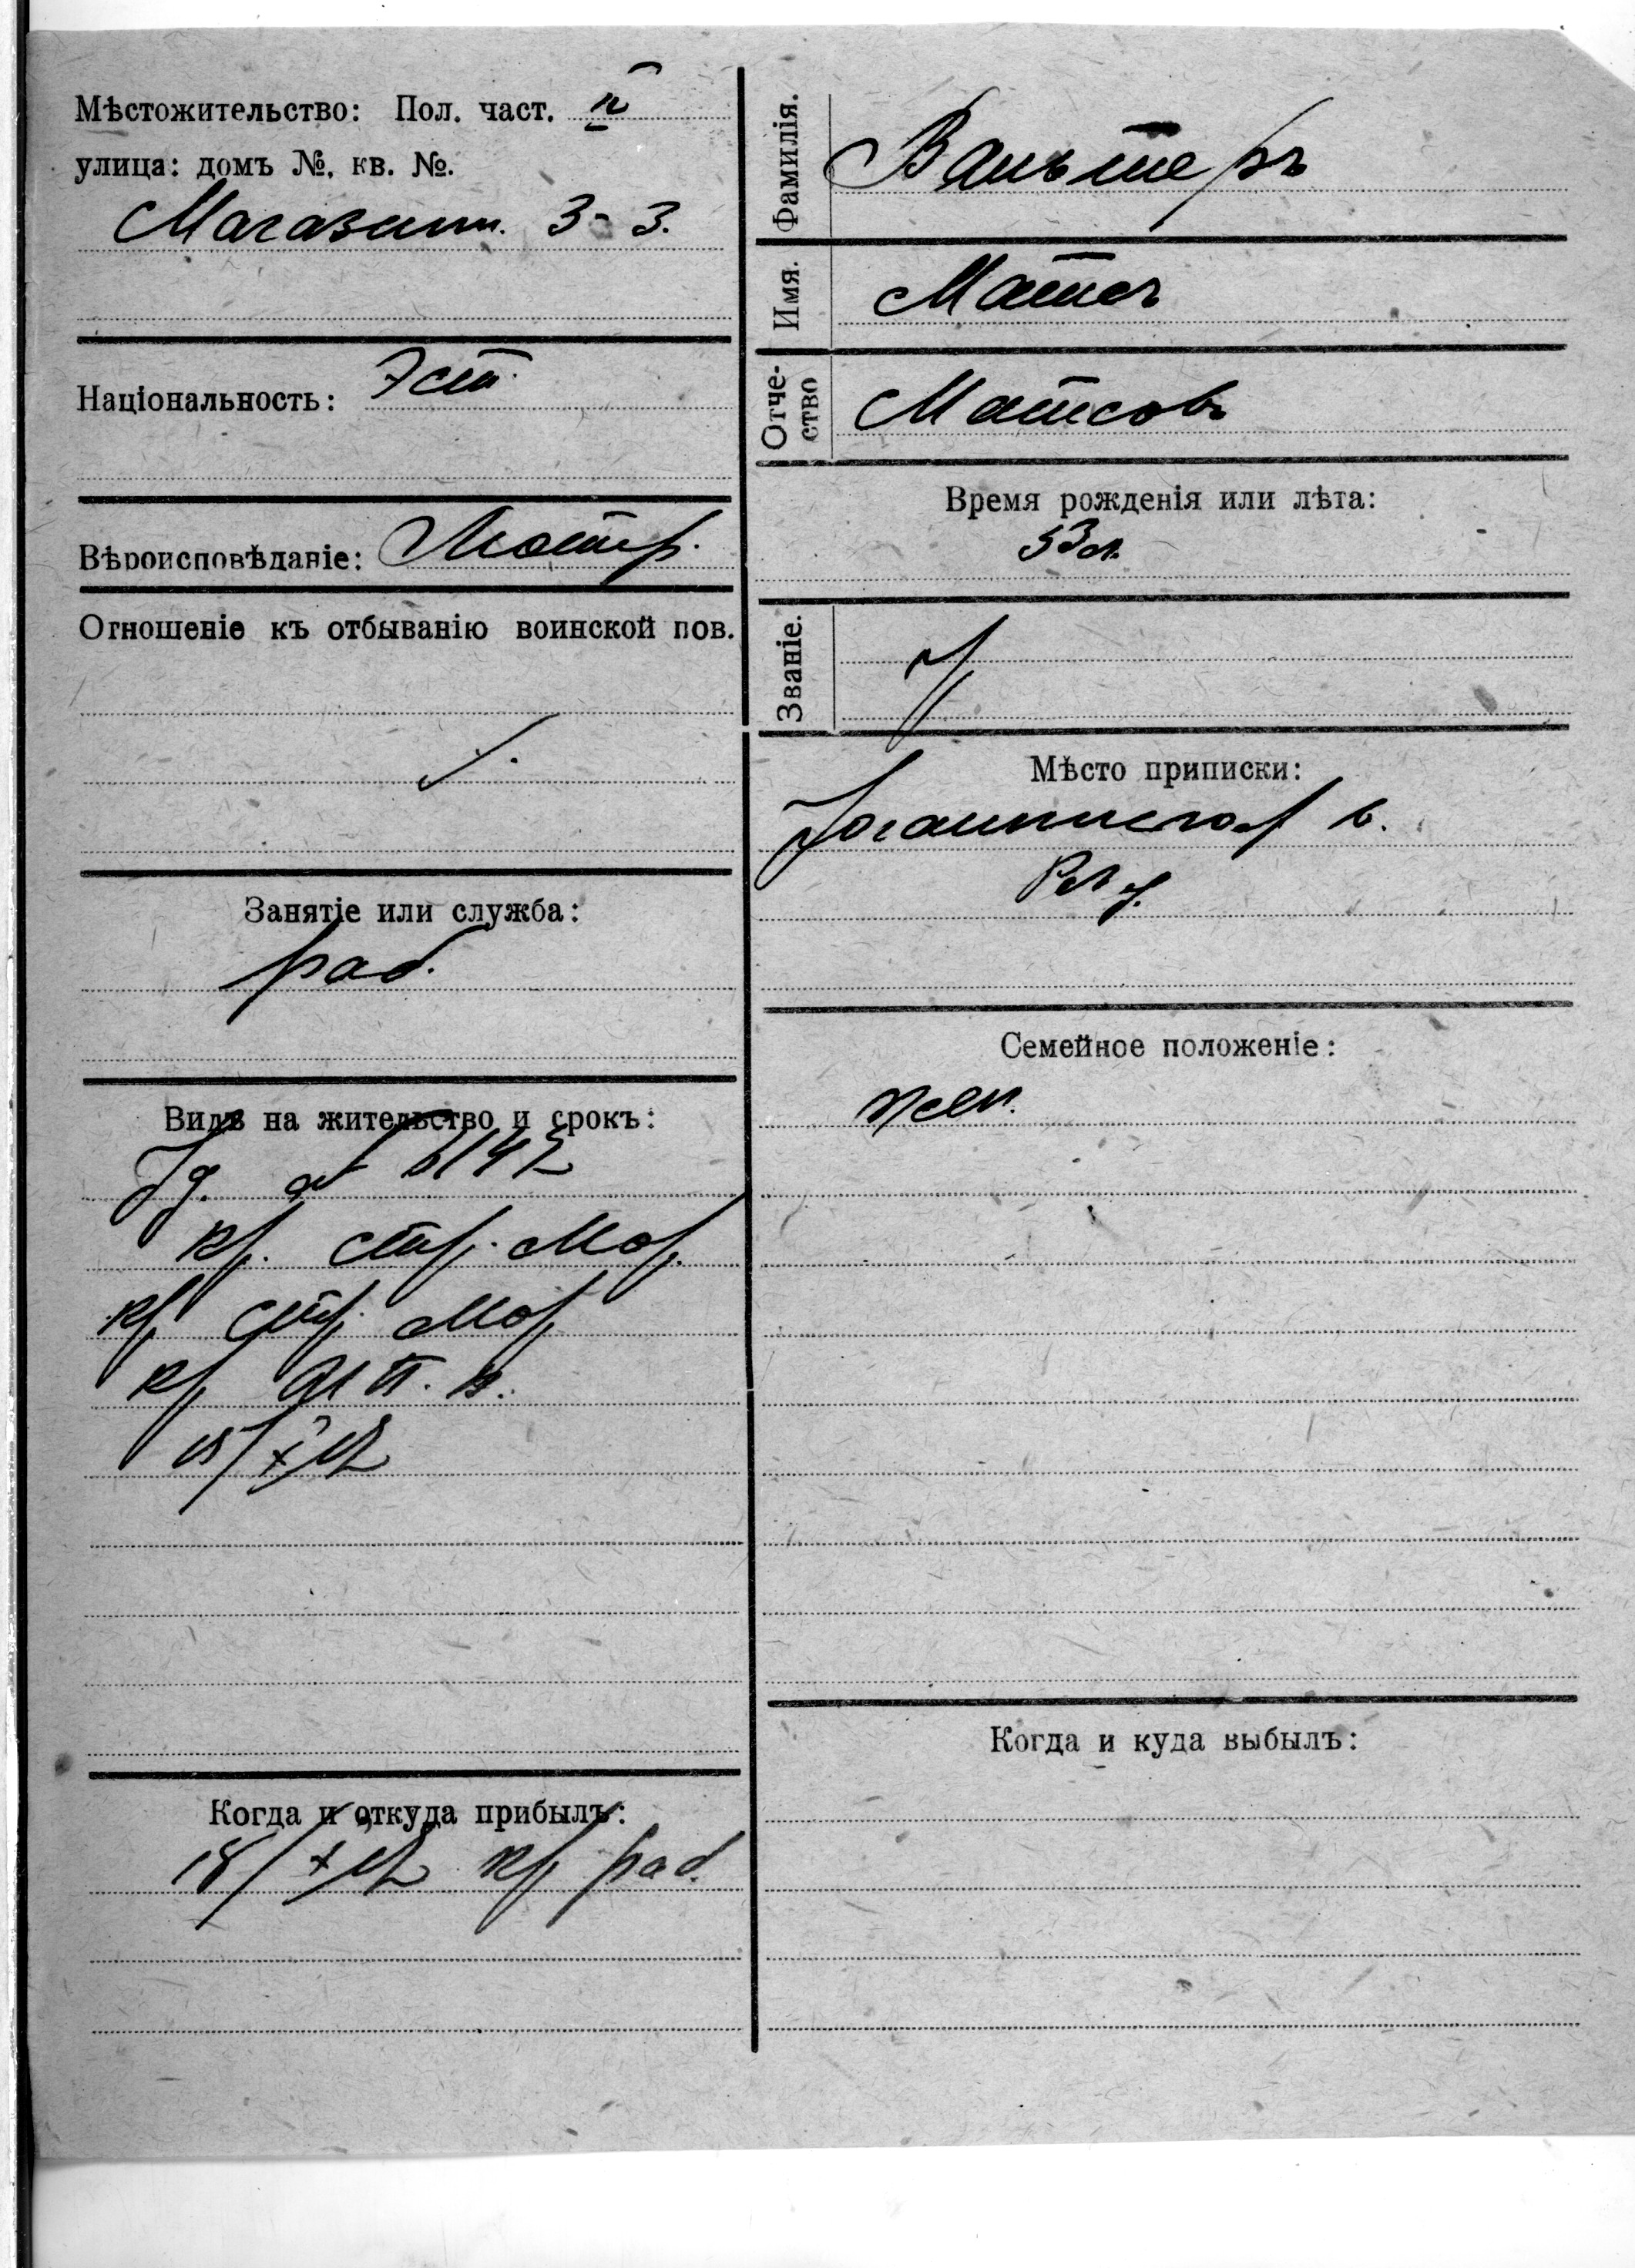 Мѣстожительство: Пол. част. II
улица: домъ №, кв. №.
Магазинн. 3 - 3.
Національность: Эст.
Вѣроисповѣданіе: Лютер.
Отношеніе къ отбыванію воинской пов.
Занятіе или служба:
раб.
Видъ на жительство и срокъ:
кр. стр. Мор.
кр стр. Мор
кр
15/X 12
Когда и откуда прибылъ:
18/X 12 кр раб.
Фамилія. Вальтеръ
Имя. Матсъ
Отчество Матсовъ
Время рожденія или лѣта:
53 л.
Званіе.
Мѣсто приписки:
Іоганнисгоф в.
Семейное положеніе:
жен.
Когда и куда выбылъ: